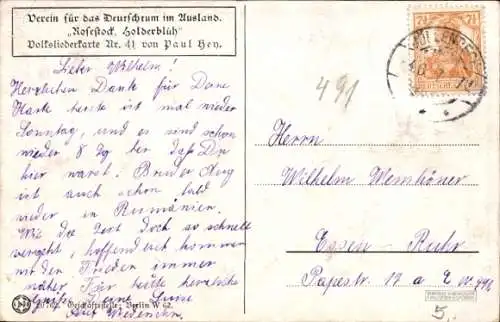 Verein für das Deutschtum im Ausland.
„Rosestock, Holderblüh"
Volksliederkarte Nr. 41 von Paul Hey.
Lieber Wilhelm!
Herzlichen Dank für Deine
Karte heute ist mal wieder
Sonntag, und es sind schon
wieder 8 Tg her daß Du
hier warst. Bruder Aug
ist auch schon bald
wieder in Rumänien.
Wie die Zeit doch so schnell
vergeht, hoffendlich kommen
wir den Frieden immer
näher Für heute herzliche
Grüße Deine
Auf Wiedersehn.
491
Herrn
Wilhelm Wemhöner
Essen-Ruhr
Papestr. 13 a
Geschäftsstelle: Berlin W 62.
5.-